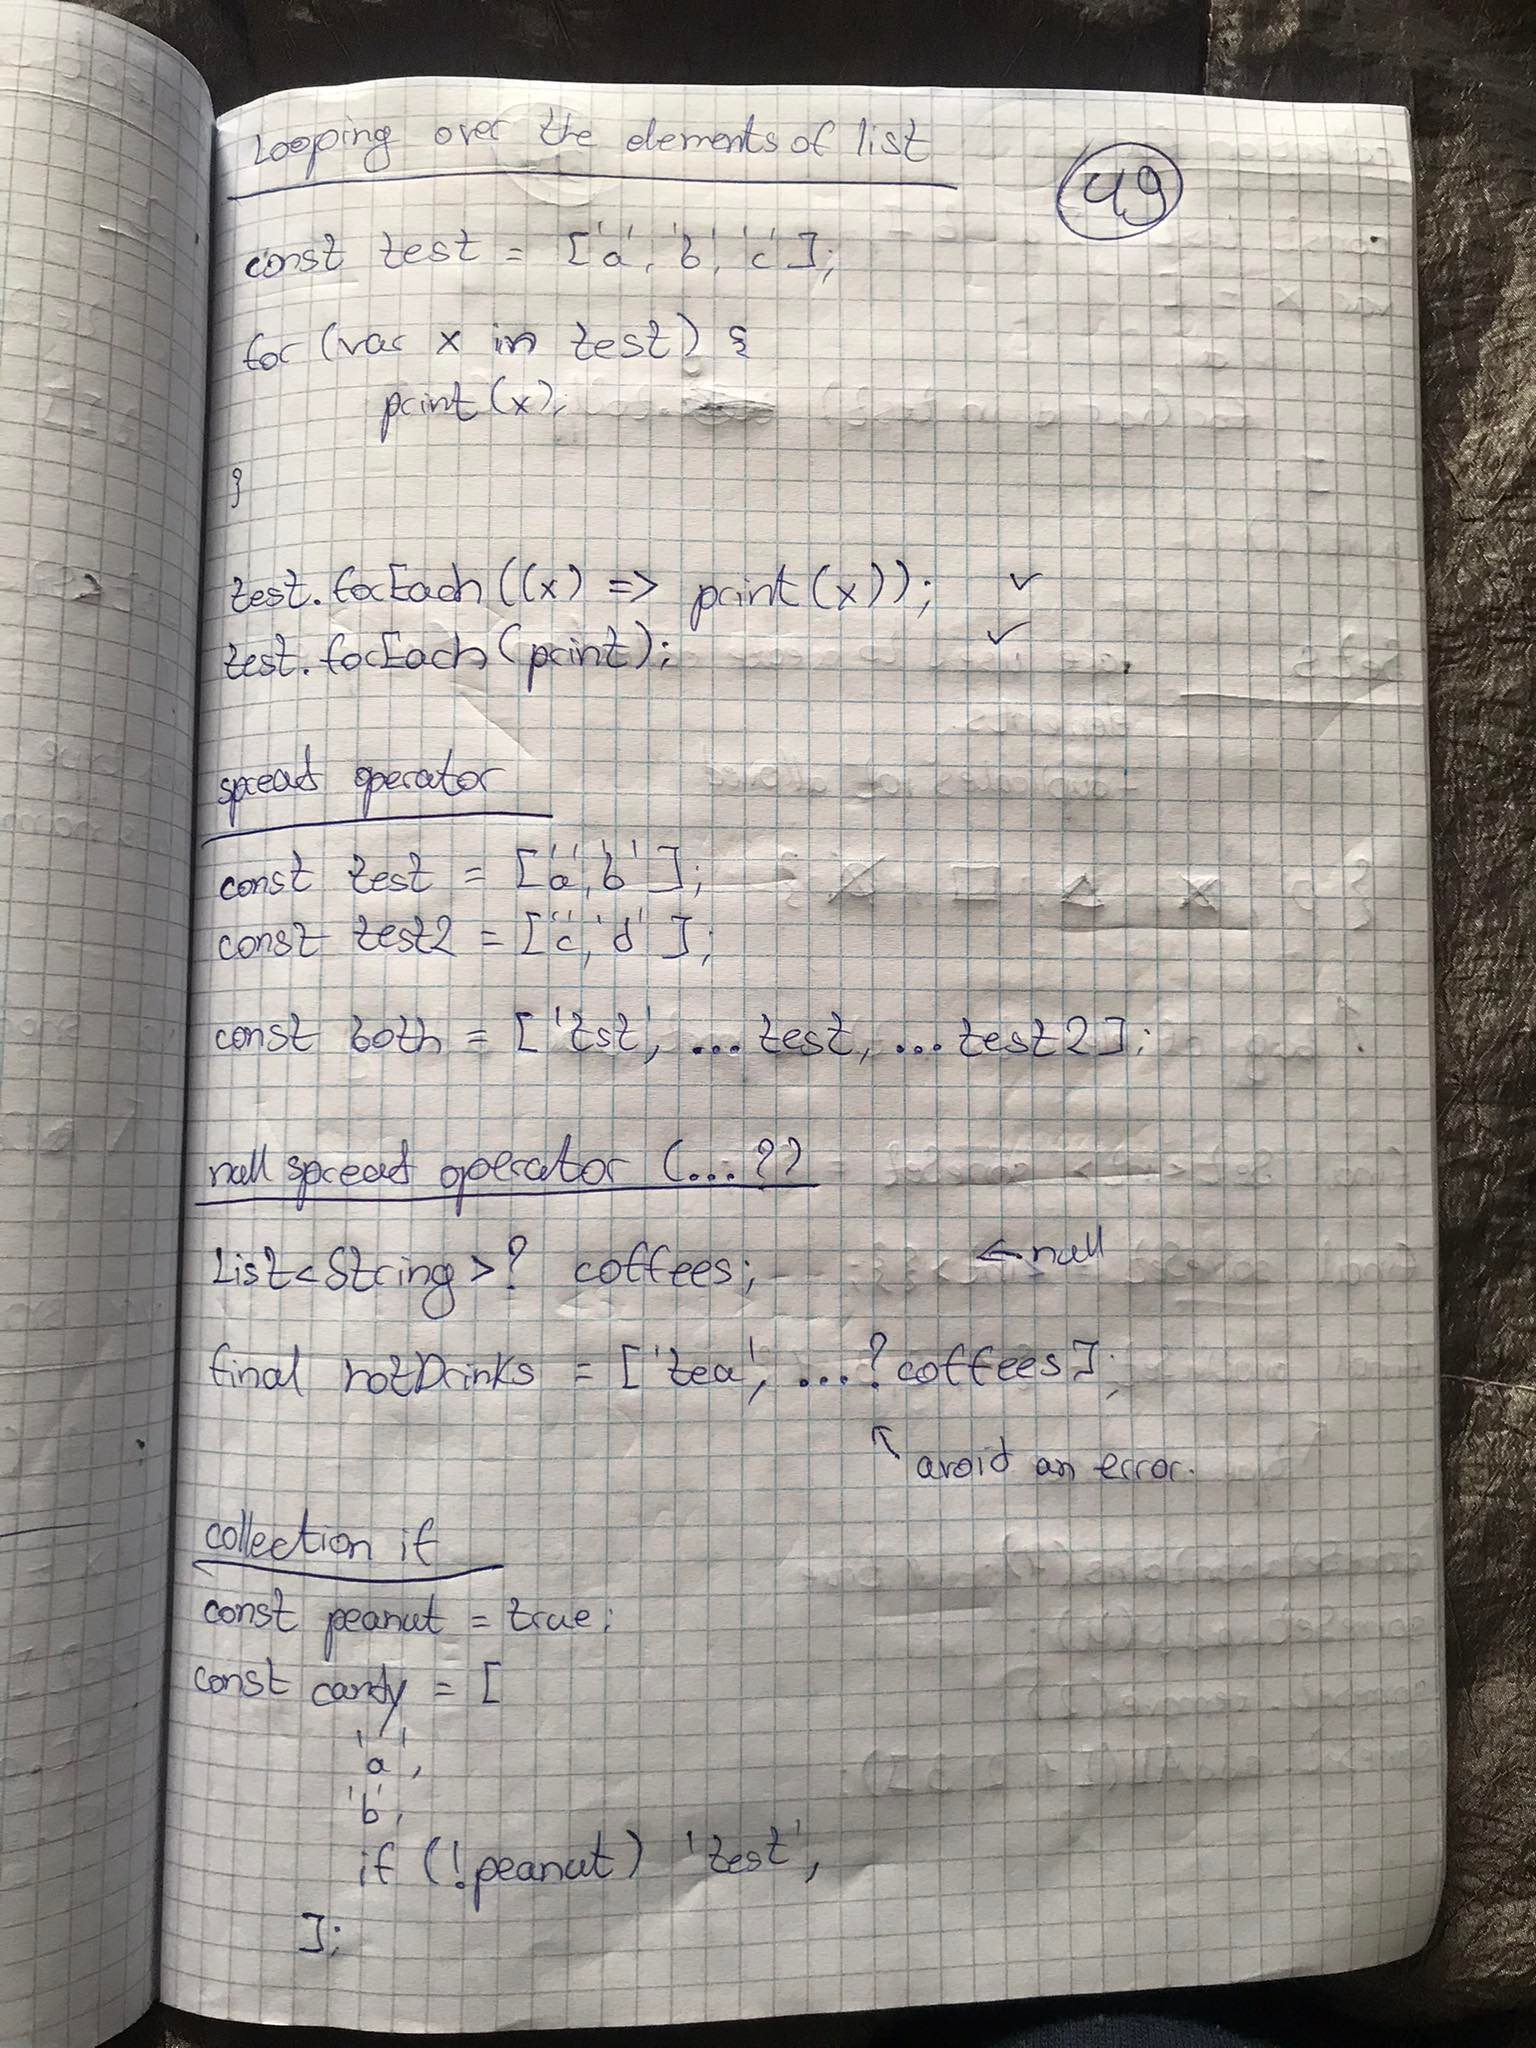 Looping over the elements of list
49
const test = ['a', 'b', 'c'];
for (var x in test) {
print(x);
}
test.forEach((x) => print(x)); ✓
test.forEach(print); ✓
spread operator
const test = ['a', 'b'];
const test2 = ['c', 'd'];
const both = ['tst', ...test, ...test2];
null spread operator (...?)
List<String>? coffees; ← null
final hotDrinks = ['tea', ...?coffees];
↖ avoid an error.
collection if
const peanut = true;
const candy = [
'a',
'b',
if (!peanut) 'test',
];